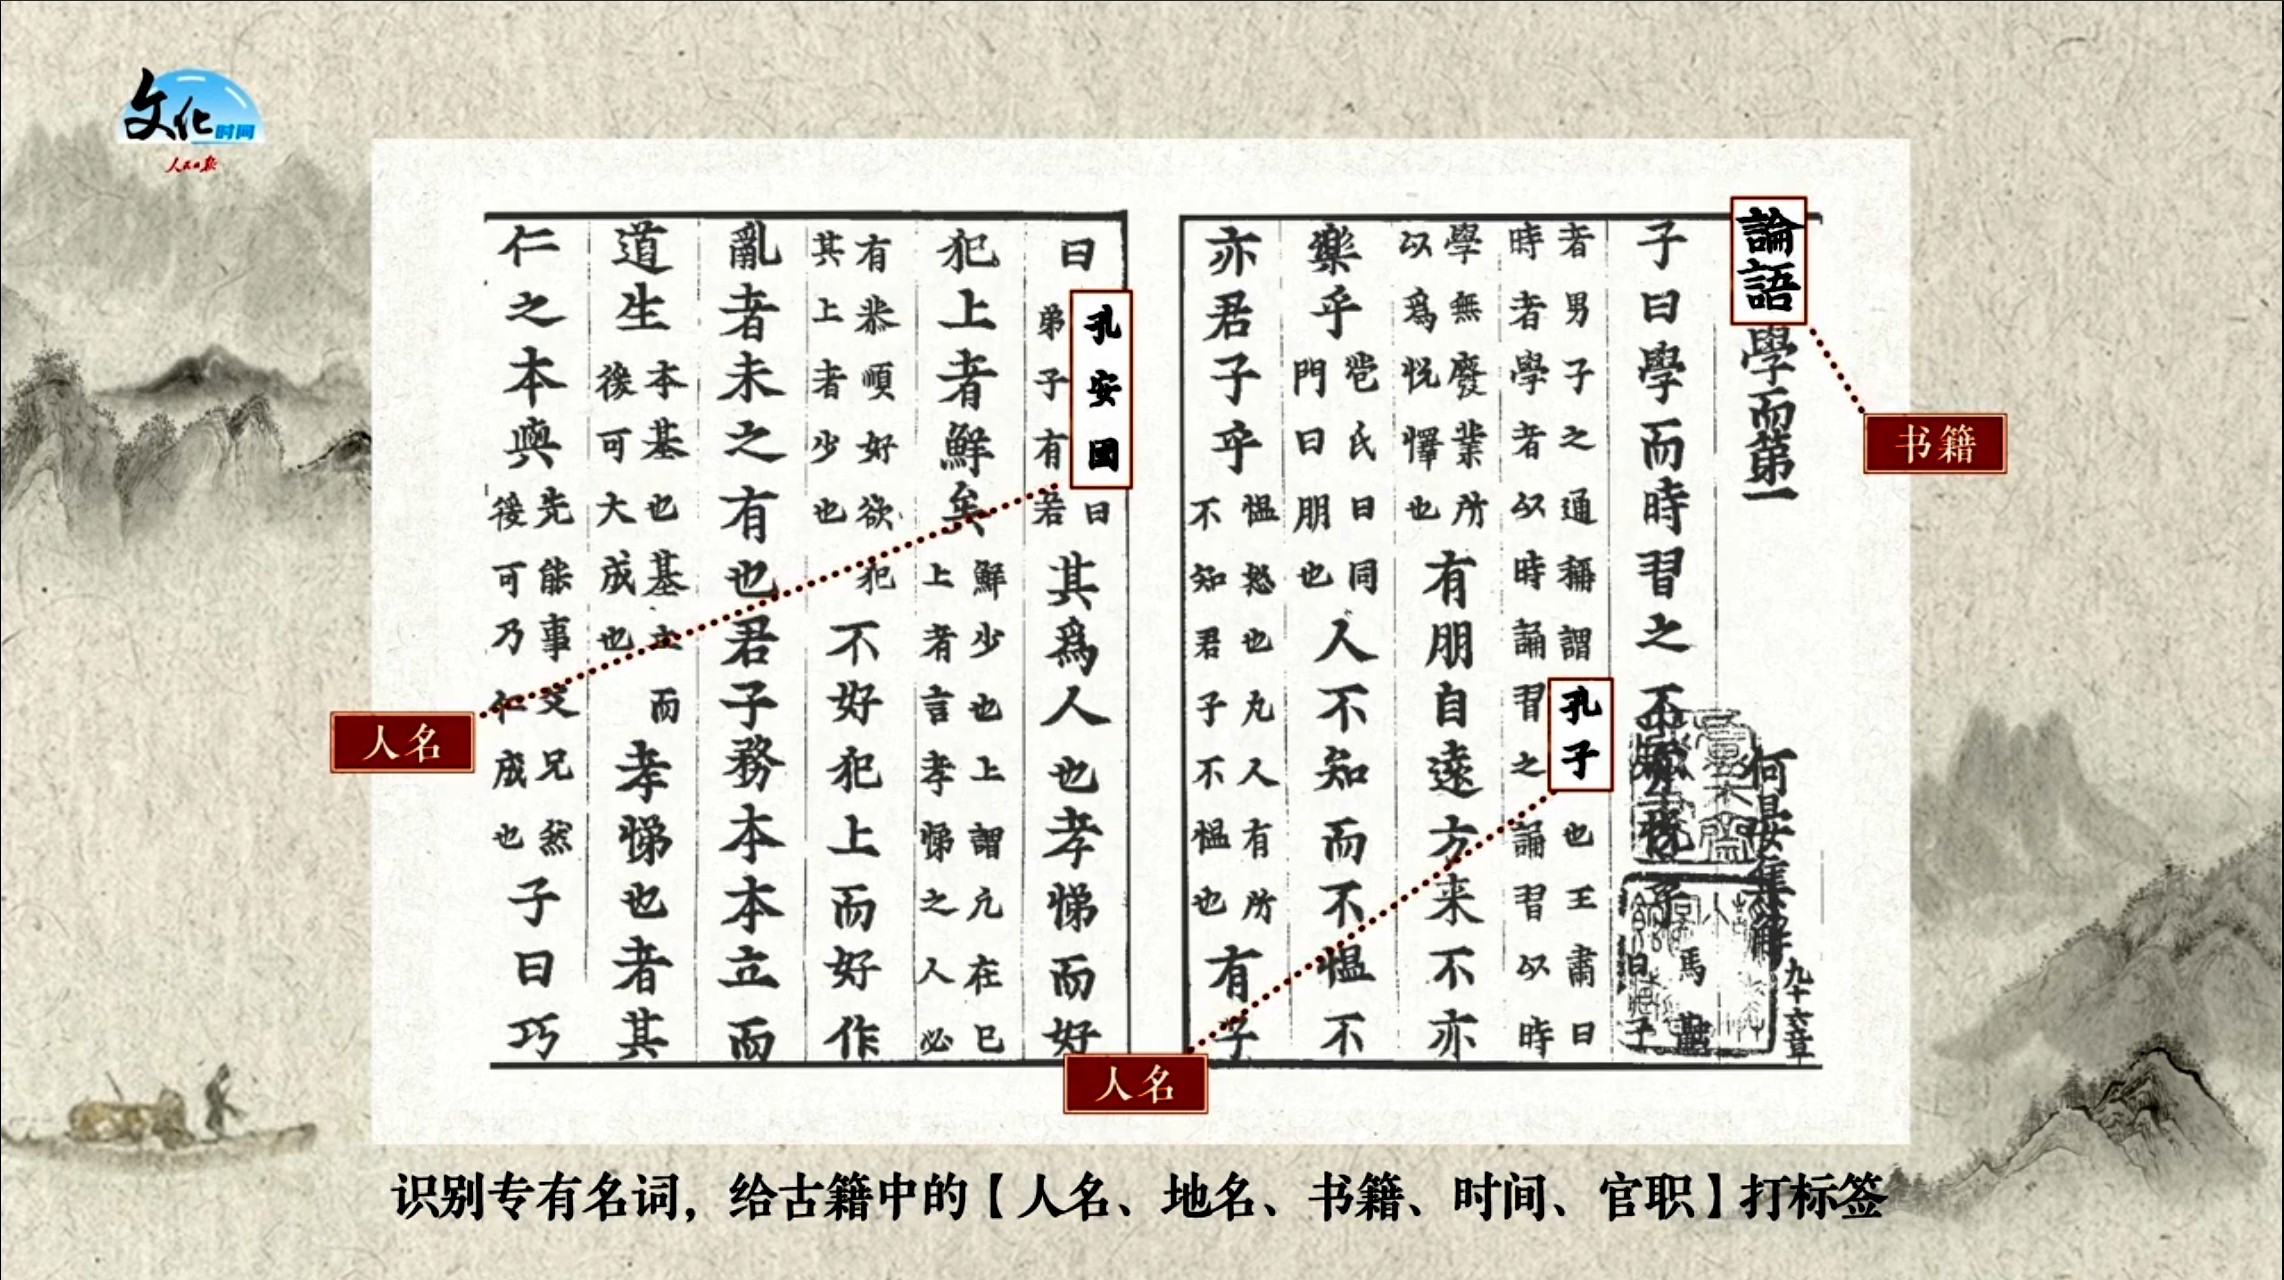 文化时间
人民日报
論語學而第一 何晏集解 凡十六章
子曰學而時習之不亦悅乎
馬融
曰子
者男子之通稱謂孔子也王肅曰
時者學者以時誦習之誦習以時
學無廢業所
以爲悅懌也
有朋自遠方来不亦
樂乎
苞氏曰同
門曰朋也
人不知而不愠不
亦君子乎
愠怒也凡人有所
不知君子不愠也
有子
曰
孔安國曰
弟子有若
其爲人也孝悌而好
犯上者鮮矣
鮮少也上謂凡在己
上者言孝悌之人必
有恭順好欲犯
其上者少也
不好犯上而好作
亂者未之有也君子務本本立而
道生
本基也基立而
後可大成也
孝悌也者其
仁之本與
先能事父兄然
後可乃仁成也
子曰巧
书籍
人名
人名
识别专有名词，给古籍中的【人名、地名、书籍、时间、官职】打标签